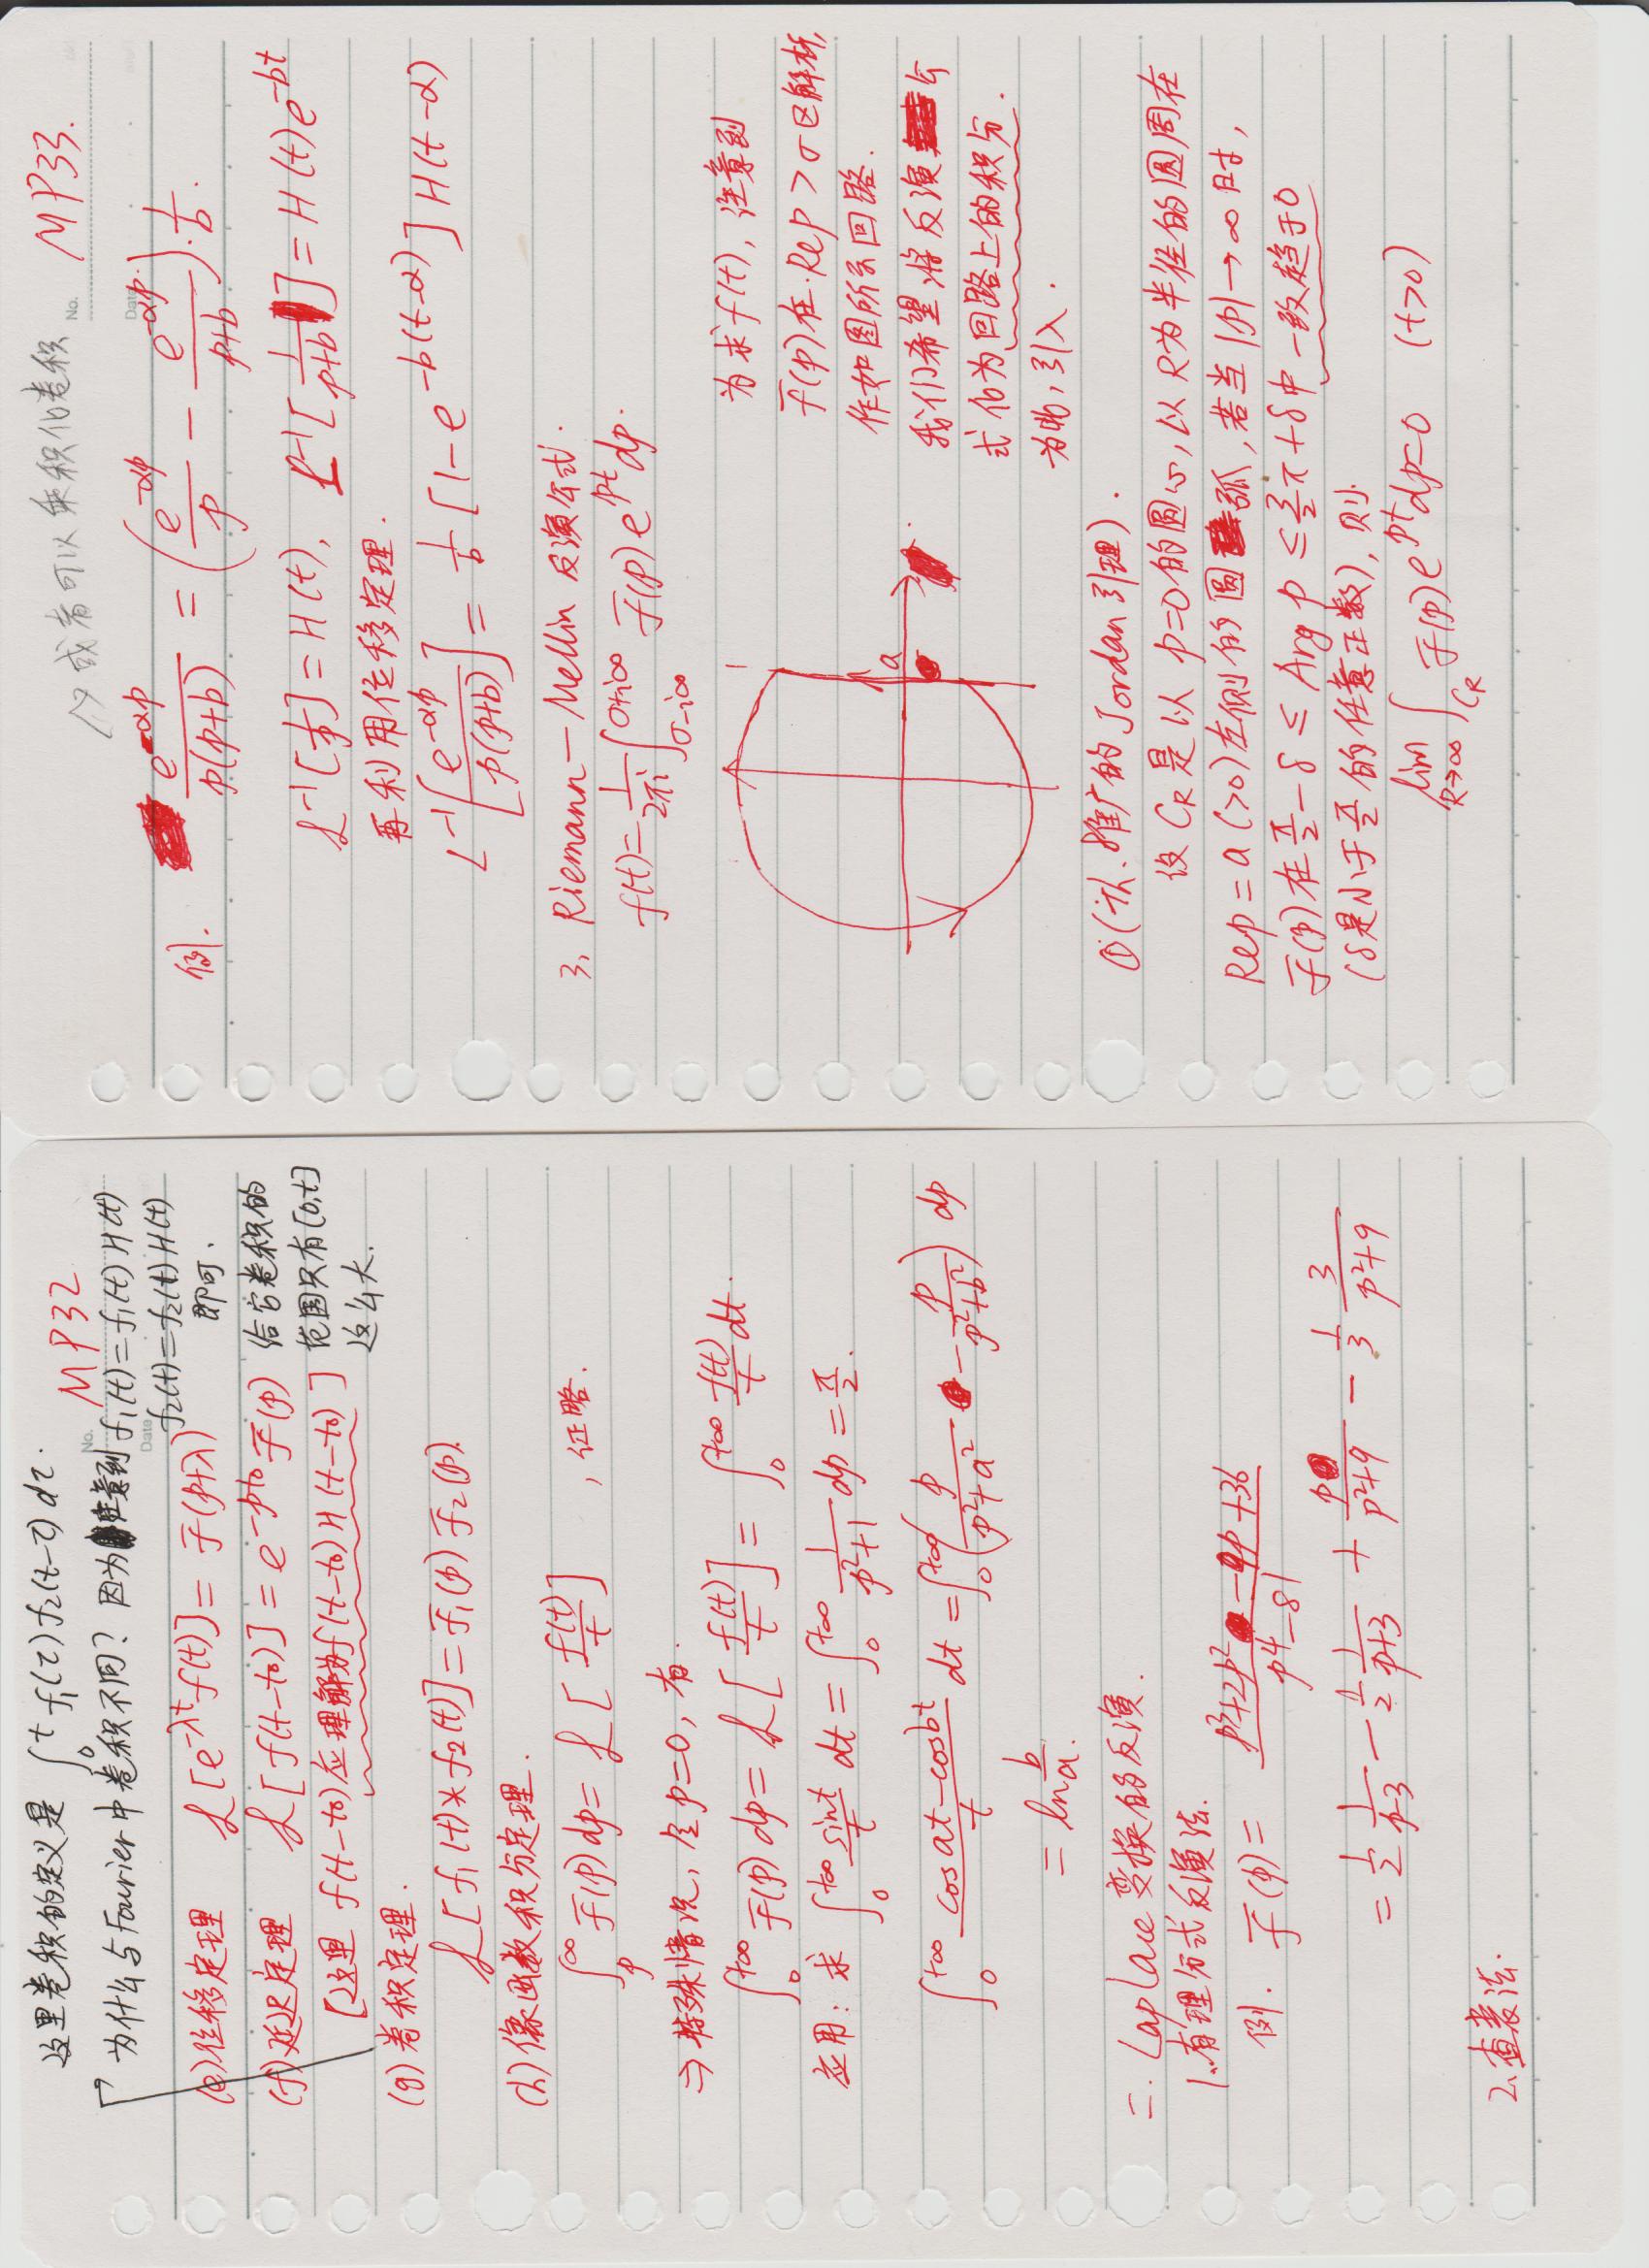 这里卷积的定义是 ∫₀ᵗ f₁(τ) f₂(t-τ) dτ.
No. MP32
为什么与Fourier中卷积不同? 因为注意到 f₁(t) = f₁(t) H(t)
Date f₂(t) = f₂(t) H(t)
即可.
(e) 位移定理 ℒ[e^{-λt} f(t)] = F̄(p+λ)
(f) 延迟定理 ℒ[f(t-t₀)] = e^{-pt₀} F̄(p)
给它卷积的
范围只有[0,t]
这么大.
[这里 f(t-t₀) 应理解为 f(t-t₀) H(t-t₀)]
(g) 卷积定理.
ℒ[f₁(t) * f₂(t)] = F̄₁(p) F̄₂(p).
(h) 像函数积分定理.
∫_p^∞ F̄(p) dp = ℒ[f(t)/t] , 证略.
⇒ 特殊情况, 令 p=0, 有.
∫₀^{+∞} F̄(p) dp = ℒ[f(t)/t] = ∫₀^{+∞} f(t)/t dt.
应用: 求 ∫₀^{+∞} sint/t dt = ∫₀^{+∞} 1/(p²+1) dp = π/2.
∫₀^{+∞} (cosat-cosbt)/t dt = ∫₀^{+∞} (p/(p²+a²) - p/(p²+b²)) dp
= ln b/a.
二. Laplace 变换的反演.
1.有理分式反演法.
例. F̄(p) = (p³+2p²-9p+36)/(p⁴-81)
= 1/2 1/(p-3) - 1/2 1/(p+3) + p/(p²+9) - 1/3 3/(p²+9)
2.查表法.
或者可以乘积化卷积
No. MP33.
Date
例. e^{-αp}/(p(p+b)) = (e^{-αp}/p - e^{-αp}/(p+b))·1/b.
ℒ⁻¹[1/p] = H(t), ℒ⁻¹[1/(p+b)] = H(t) e^{-bt}
再利用位移定理.
ℒ⁻¹[e^{-αp}/(p(p+b))] = 1/b [1-e^{-b(t-α)}] H(t-α)
3. Riemann-Mellin 反演公式.
f(t) = 1/(2πi) ∫_{σ-i∞}^{σ+i∞} F̄(p) e^{pt} dp.
a
为求 f(t), 注意到
F̄(p) 在 Rep > σ 区解析,
作如图所示回路.
我们希望将反演公
式化为回路上的积分.
为此, 引入.
①(Th. 推广的 Jordan 引理).
设 C_R 是以 p=0 的圆心, 以 R 为半径的圆周在
Rep = a (>0) 左侧的圆弧, 若当 |p| → ∞ 时,
F̄(p) 在 π/2 - δ ≤ Arg p ≤ 3/2 π + δ 中一致趋于0
(δ是小于 π/2 的任意正数), 则
lim_{R→∞} ∫_{C_R} F̄(p) e^{pt} dp = 0 (t>0)